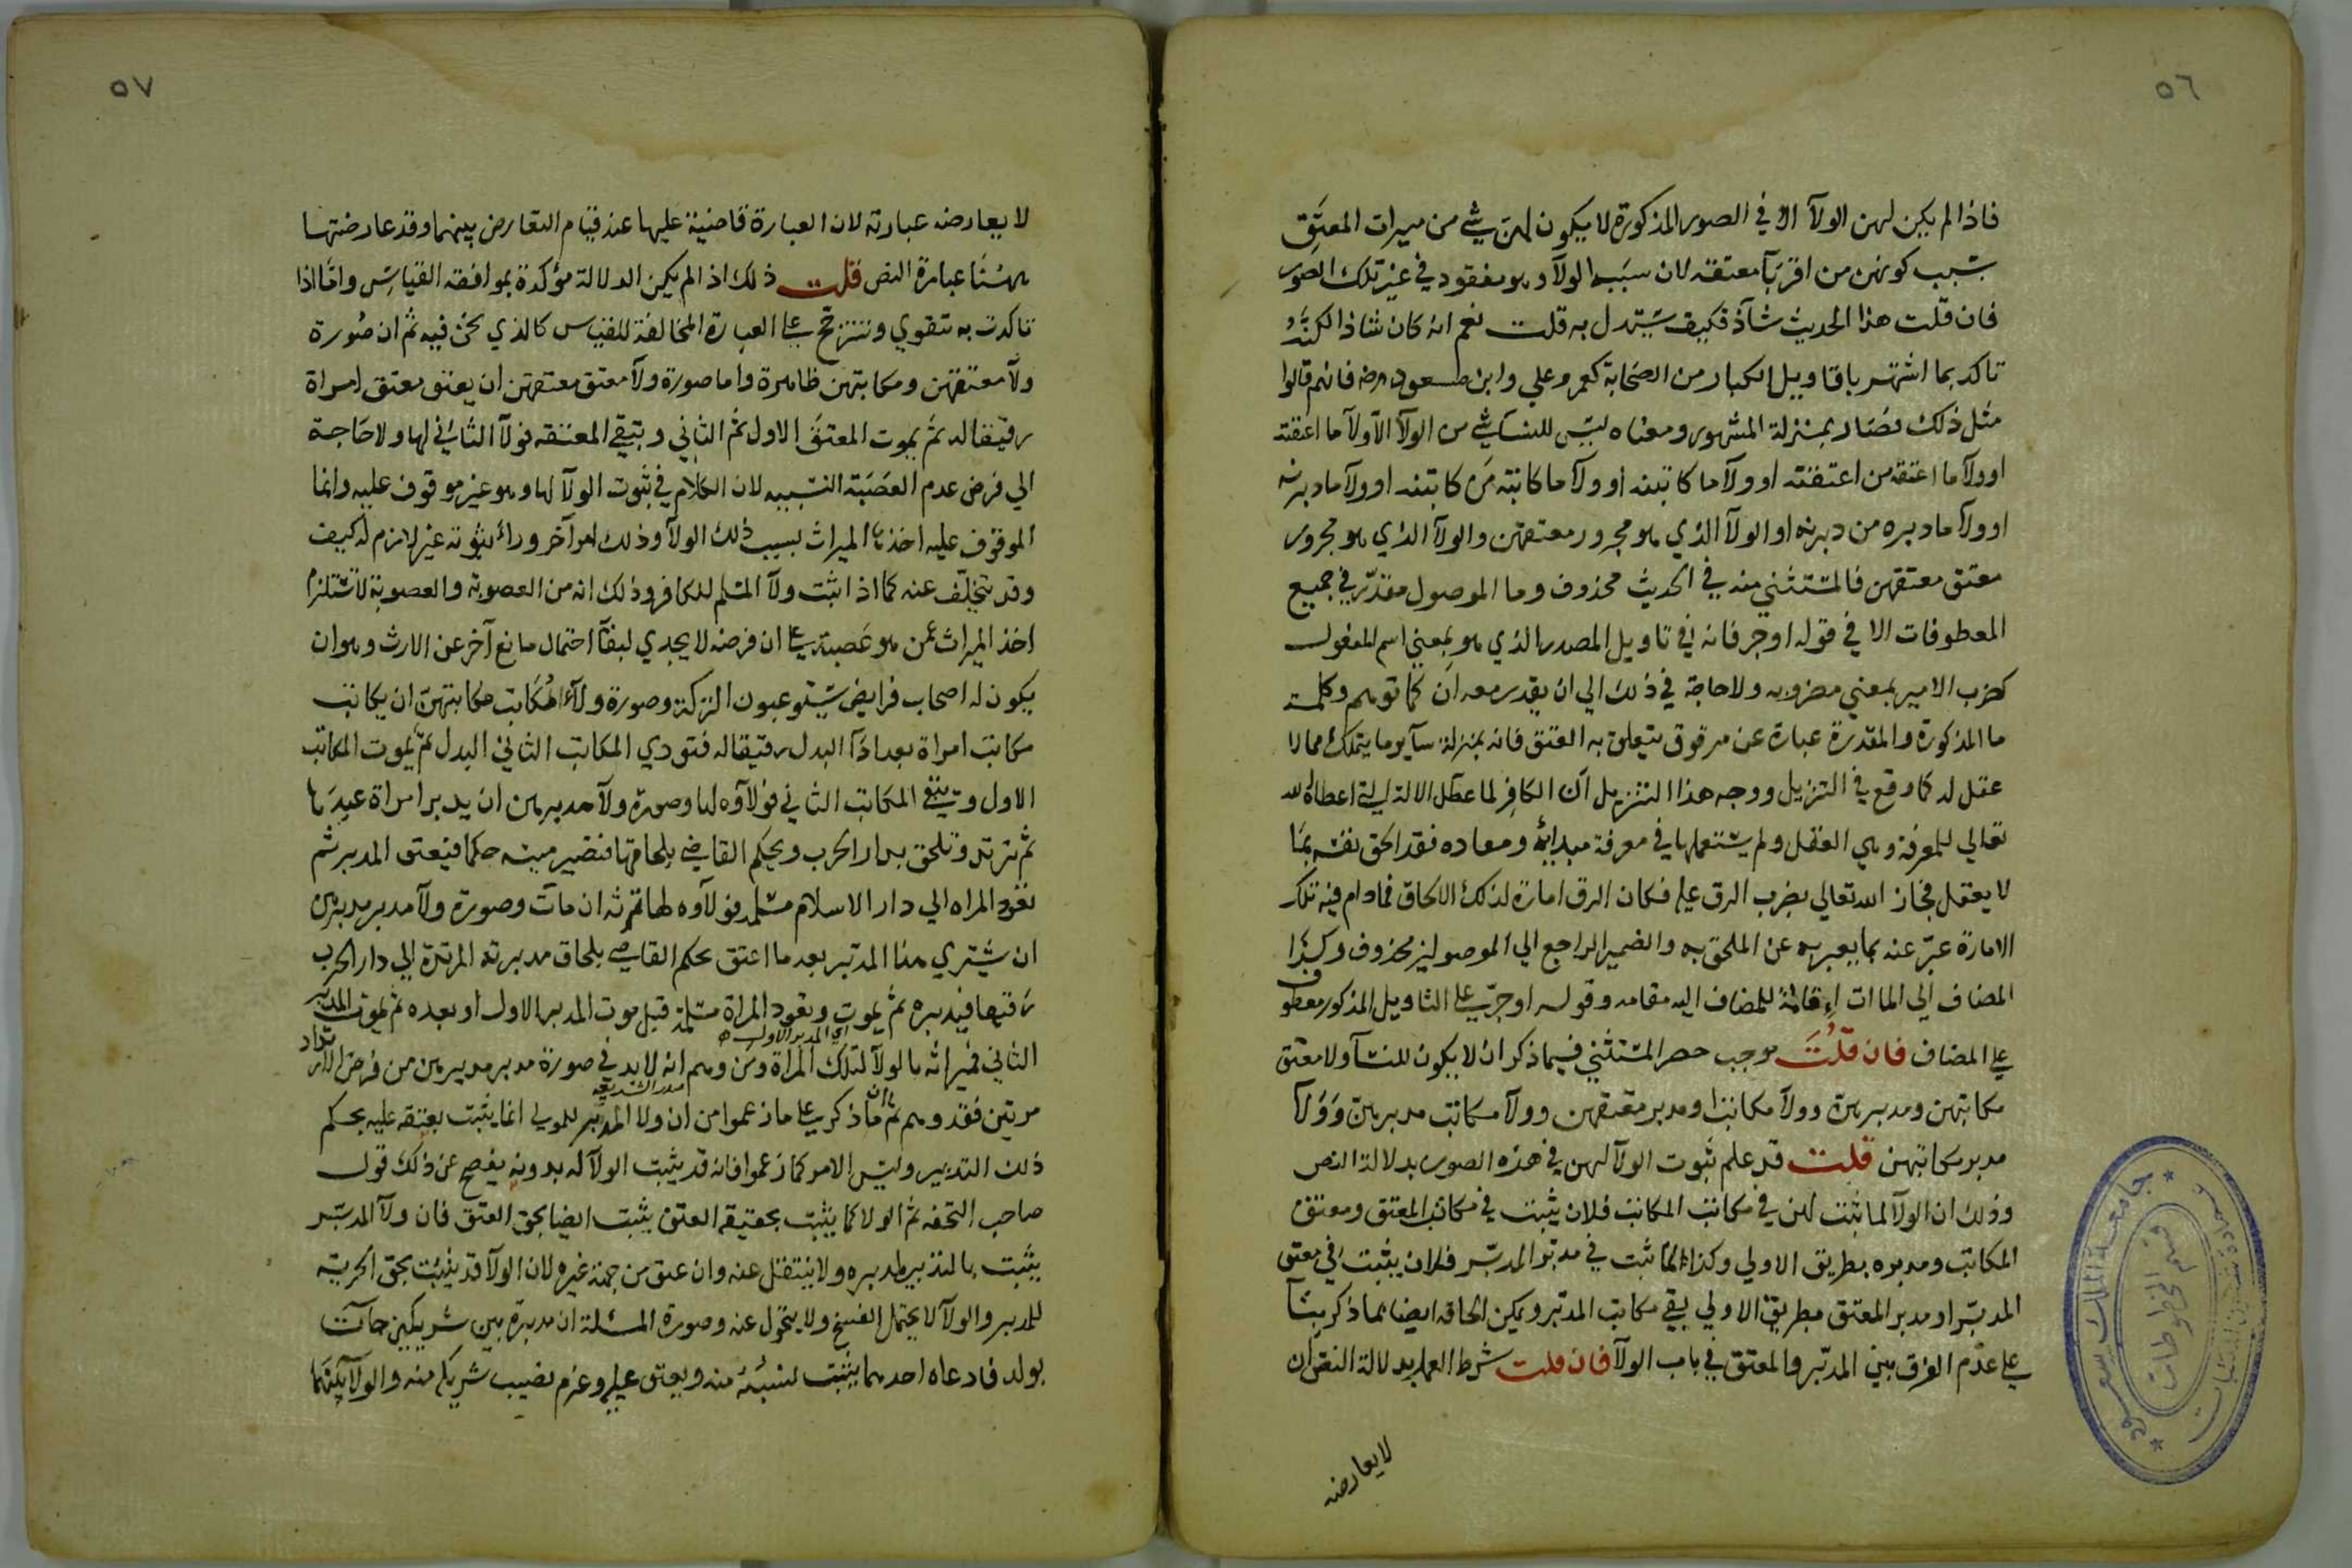 ٥٦
فاذا لم يكن لهن الولآ الا في الصور المذكورة لا يكون لهن شي من ميراث المعتق
بسبب كونهن من اقربآ معتقه لان سبب الولآ وهو مفقود في غير تلك الصور
فان قلت هذا الحديث شاذ فكيف يستدل به قلت نعم انه كان شاذا لكنه
تاكد بما اشتهر باقاويل الكبار من الصحابة كعمر وعلي وابن مسعود رضه فانهم قالوا
مثل ذلك فصار بمنزلة المشهور ومعناه ليس للنسآ شي من الولآ الا ولآ ما اعتقنه
او ولآ ما اعتقه من اعتقنه او ولآ ما كاتبنه او ولآ ما كاتبه من كاتبنه او ولآ ما دبرنه
او ولآ ما دبره من دبرنه او الولآ الذي هو مجرور معتقهن والولآ الذي هو مجرور
معتق معتقهن فالمستثني منه في الحديث محذوف وما الموصول مقدر في جميع
المعطوفات الا في قوله او جر فانه في تاويل المصدر الذي هو بمعني اسم المفعول
كضرب الامير بمعني مضروبه ولا حاجة في ذلك الي ان يقدر معه ان كما توهم وكلمة
ما المذكورة والمقدرة عبارة عن مرقوق يتعلق به العتق فانه بمنزلة ساير ما يتملك مما لا
عقل له كما وقع في التنزيل ووجه هذا التنزيل ان الكافر لما عطل الالة التي اعطاه الله
تعالي للمعرفة وهي العقل ولم يستعملها في معرفة مبدائه ومعاده فقد الحق نفسه بما
لا يعقل فجاز الله تعالي بضرب الرق عليه فكان الرق امارة لذلك الالحاق فمادام فيه تلك
الامارة عبر عنه بما يعبر به عن الملحق به والضمير الراجع الي الموصولين محذوف وكذا
المضاف الي الماات اقامة للمضاف اليه مقامه وقوله او جر علي التاويل المذكور معطوف
علي المضاف فان قلت موجب حصر المستثني فيما ذكر ان لا يكون للنسآ ولا معتق
مكاتبهن ومدبرهن وولآ مكاتب ومدبر معتقهن وولآ مكاتب مدبرهن وولآ
مدبر مكاتبهن قلت قد علم ثبوت الولآ لهن في هذه الصور بدلالة النص
وذلك ان الولآ لما ثبت لهن في مكاتب المكاتب فلان يثبت في مكاتب المعتق ومعتق
المكاتب ومدبره بطريق الاولي وكذا لما ثبت في مدبر المدبر فلان يثبت في معتق
المدبر او مدبر المعتق بطريق الاولي بقي مكاتب المدبر ويمكن الحاقه ايضا بما ذكر بنآ
علي عدم الفرق بين المدبر والمعتق في باب الولآ فان قلت شرط العمل بدلالة النص ان
لا يعارضه
جامعة الملك سعود
قسم المخطوطات
٥٧
لا يعارضه عبارته لان العبارة قاضية عليها عند قيام التعارض بينهما وقد عارضتها
ههنا عبارة النص قلت ذلك اذا لم يكن الدلالة مؤكدة بموافقة القياس واما اذا
تاكدت به تتقوي وتترجح علي العبارة المخالفة للقياس كالذي نحن فيه ثم ان صورة
ولآ معتقهن ومكاتبهن ظاهرة واما صورة ولآ معتق معتقهن ان يعتق معتق امراة
رقيقا له ثم يموت المعتق الاول ثم الثاني وتبقي المعتقه فولآ الثاني لها ولا حاجة
الي فرض عدم العصبة النسبيه لان الكلام في ثبوت الولآ لها وهو غير موقوف عليه وانما
الموقوف عليه اخذها الميراث بسبب ذلك الولآ وذلك امر آخر ورآء ثبوته غير لازم له كيف
وقد يتخلف عنه كما اذا ثبت ولآ المسلم للكافر وذلك انه من العصوبة والعصوبة لا تستلزم
اخذ الميراث عمن هو عصبته علي ان فرضه لا يجدي لبقآ احتمال مانع آخر عن الارث وهو ان
يكون له اصحاب فرايض يستوعبون التركة وصورة ولآء مكاتب مكاتبتهن ان يكاتب
مكاتب امراة بعد اذآ البدل رقيقا له فتودي المكاتب الثاني البدل ثم يموت المكاتب
الاول ويبقي المكاتب الثاني فولآوه لها وصورة ولآ مدبرهن ان يدبر امراة عبدها
ثم ترتد وتلحق بدار الحرب ويحكم القاضي بلحاقها فتصير ميتة حكما فيعتق المدبر ثم
تعود المراه الي دار الاسلام مسلمة فولآوه لها ثمرته ان مات وصورة ولآ مدبر مدبرهن
ان يشتري هذا المدبر بعد ما اعتق بحكم القاضي بلحاق مدبرته المرتدة الي دار الحرب
رقيقا فيدبره ثم يموت وتعود المراة مسلمة قبل موت المدبر الاول او بعده ثم يموت المدبر
اي المدبر الاول
الثاني فميراثه بالولآ لتلك المراة ومن وهم انه لابد في صورة مدبر مدبرهن من فرض الارتداد
صدر الشريعه
مرتين فقد وهم ثم ان ما ذكر علي ما زعموا من ان ولا المدبر للمولي انما يثبت بعتقه عليه بحكم
ذلك التدبير وليس الامر كما زعموا فانه قد يثبت الولآ له بدونه يفصح عن ذلك قول
صاحب التحفه ثم الولا كما يثبت بحقيقة العتق يثبت ايضا بحق العتق فان ولآ المدبر
يثبت بالتدبير لمدبره ولا ينتقل عنه وان عتق من جهة غيره لان الولآ قد يثبت بحق الحرية
للمدبر والولآ لا يحتمل الفسخ ولا يتحول عنه وصورة المسئلة ان مدبرة بين شريكين جآت
بولد فادعاه احدهما يثبت نسبه منه ويعتق عليه وغرم نصيب شريكه منه والولآ بينهما